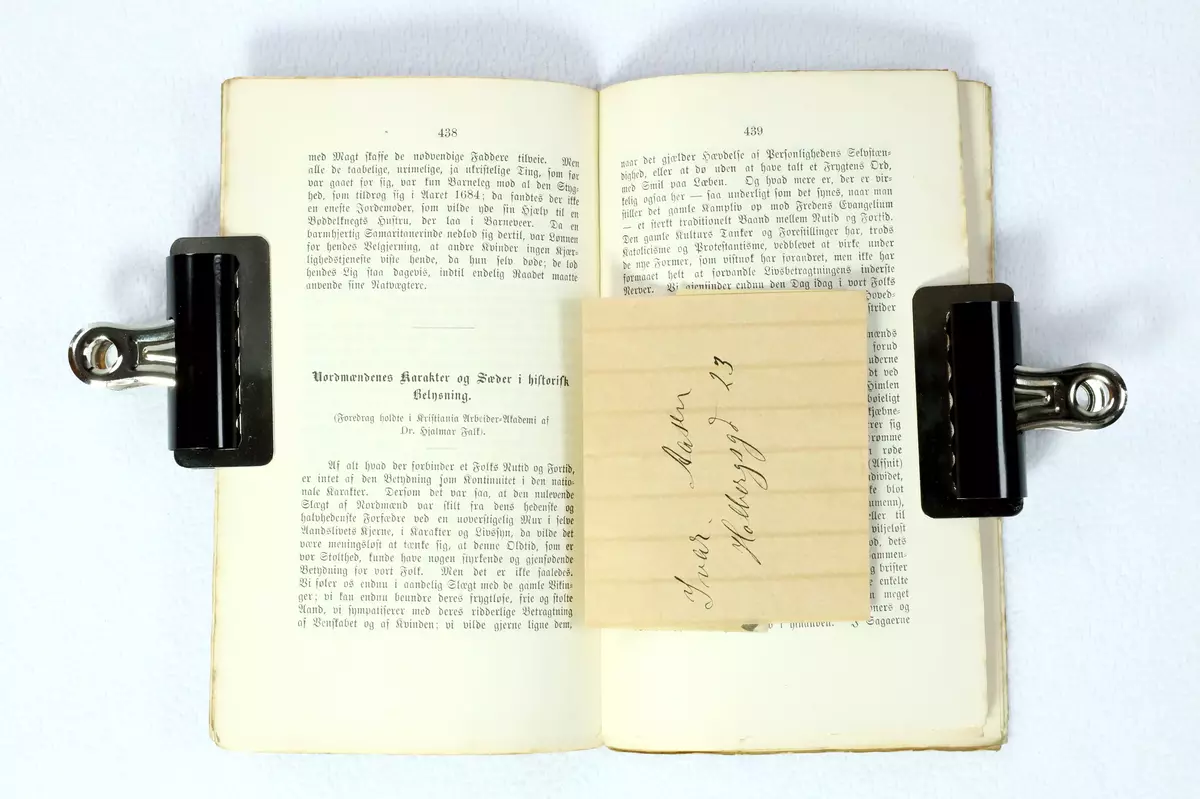 438
med Magt skaffe de nødvendige Faddere tilveie. Men
alle de taabelige, urimelige, ja ukristelige Ting, som før
var gaaet for sig, var kun Barneleg mod al den Styg-
hed, som tildrog sig i Aaret 1684; da fandtes der ikke
en eneste Jordemoder, som vilde yde sin Hjælp til en
Bøddelknegts Hustru, der laa i Barneveer. Da en
barmhjertig Samaritanerinde nedlod sig dertil, var Lønnen
for hendes Velgjerning, at andre Kvinder ingen Kjær-
lighedstjeneste viste hende, da hun selv døde; de lod
hendes Lig staa dagevis, indtil endelig Raadet maatte
anvende sine Natvægtere.
Nordmændenes Karakter og Sæder i historisk
Belysning.
(Foredrag holdte i Kristiania Arbeider-Akademi af
Dr. Hjalmar Falk).
Af alt hvad der forbinder et Folks Nutid og Fortid,
er intet af den Betydning som Kontinuitet i den natio-
nale Karakter. Dersom det var saa, at den nulevende
Slægt af Nordmænd var skilt fra dens hedenske og
halvhedenske Forfædre ved en uoverstigelig Mur i selve
Aandslivets Kjerne, i Karakter og Livssyn, da vilde det
være meningsløst at tænke sig, at denne Oldtid, som er
vor Stolthed, kunde have nogen styrkende og gjenfødende
Betydning for vort Folk. Men det er ikke saaledes.
Vi føler os endnu i aandelig Slægt med de gamle Vikin-
ger; vi kan endnu beundre deres frygtløse, frie og stolte
Aand, vi sympatiserer med deres ridderlige Betragtning
af Venskabet og af Kvinden; vi vilde gjerne ligne dem,
439
naar det gjælder Hævdelse af Personlighedens Selvstæn-
dighed, eller at dø uden at have talt et Frygtens Ord,
med Smil paa Læben. Og hvad mere er, der er vir-
kelig ogsaa her — saa underligt som det synes, naar man
stiller det gamle Kampliv op mod Fredens Evangelium
— et sterkt traditionelt Baand mellem Nutid og Fortid.
Den gamle Kulturs Tanker og Forestillinger har, trods
Katolicisme og Protestantisme, vedblevet at virke under
de nye Former, som vistnok har forandret, men ikke har
formaaet helt at forvandle Livsbetragtningens inderste
Nerver. Vi gjenfinder endnu den Dag idag i vort Folks
Hoved-
strider
mænds
forud
uderne
dt ved
Himlen
bøieligt
kjæbne-
rer sig
rømme
røde
(Afsnit)
dividet,
ke blot
umenn),
eller til
viljeløst
od, dets
ammen-
g brister
enkelte
meget
ners og
i hinanden. I Sagaerne
Ivar Aasen
Holbergsgd 23